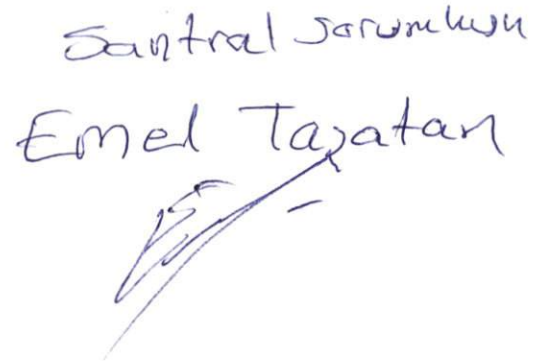 Santral sorumlusu
Emel Tazatan